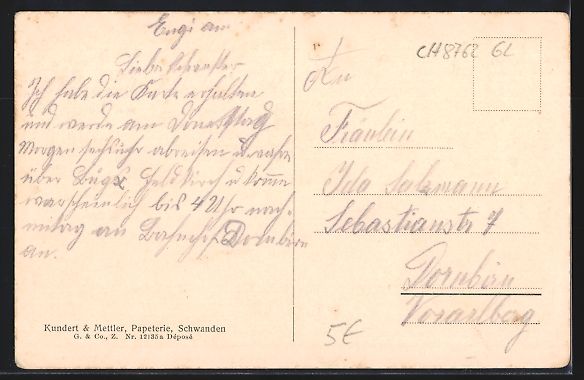 Engi am
Liebe Schwester
Ich habe die Karte erhalten
und werde am Donnstag
Morgen sechsuhr abreisen u.
über Bugs Feldkirch u. komme
warscheinlich bis 4 Uhr nach-
mitag am Bahnhof Dornbirn
an.
Kundert & Mettler, Papeterie, Schwanden
G. & Co., Z. Nr. 12135a Déposé
CH8762 GL
An
Fräulein
Ida Salzmann
Sebastianstr 7
Dornbirn
Vorarlberg
5€